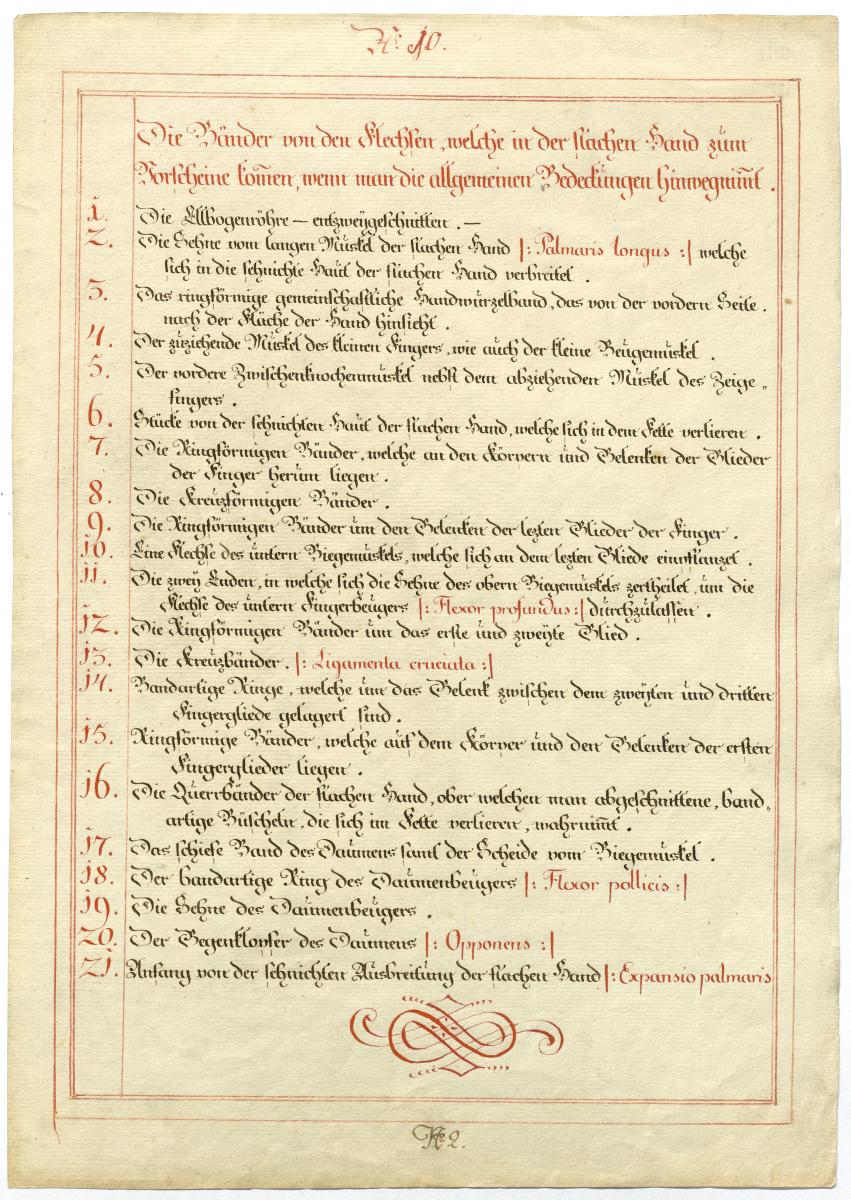 N<sup>o</sup>: 10.
Die Bänder von den Flechsen, welche in der flachen Hand zum
Vorscheine kom̄en, wenn man die allgemeinen Bedeckungen hinwegnim̄t.
1. Die Ellbogenröhre — entzweygeschnitten. —
2. Die Sehne vom langen Muskel der flachen Hand |: Palmaris longus :| welche
sich in die sehnichte Haut der flachen Hand verbreitet.
3. Das ringförmige gemeinschaftliche Handwurzelband, das von der vordern Seite.
nach der Fläche der Hand hinsieht.
4. Der zuziehende Muskel des kleinen Fingers, wie auch der kleine Beugemuskel.
5. Der vordere Zwischenknochenmuskel nebst dem abziehenden Muskel des Zeige„
fingers.
6. Stücke von der sehnichten Haut der flachen Hand, welche sich in dem Fette verlieren.
7. Die Ringförmigen Bänder, welche an den Körpern und Gelenken der Glieder
der Finger herum liegen.
8. Die Kreuzförmigen Bänder.
9. Die Ringförmigen Bänder um den Gelenken der lezten Glieder der Finger.
10. Eine Flechse des untern Biegemuskels, welche sich an dem lezten Gliede einpflanzet.
11. Die zwey Enden, in welche sich die Sehne des obern Biegemuskels zertheilet, um die
Flechse des untern Fingerbeugers |: Flexor profundus :| durchzulassen.
12. Die Ringförmigen Bänder um das erste und zweyte Glied.
13. Die Kreuzbänder. |: Ligamenta cruciata :|
14. Bandartige Ringe, welche um das Gelenk zwischen dem zweyten und dritten
Fingergliede gelagert sind.
15. Ringförmige Bänder, welche auf dem Körper und den Gelenken der ersten
Fingerglieder liegen.
16. Die Querrbänder der flachen Hand, ober welchen man abgeschnittene, band„
artige Büscheln, die sich im Fette verlieren, wahrnim̄t.
17. Das schiefe Band des Daumens samt der Scheide vom Biegemuskel.
18. Der bandartige Ring des Daumenbeugers |: Flexor pollicis :|
19. Die Sehne des Daumenbeugers.
20. Der Gegenklopfer des Daumens |: Opponens :|
21. Anfang von der sehnichten Ausbreitung der flachen Hand |: Expansio palmaris
N<sup>o</sup> 2.